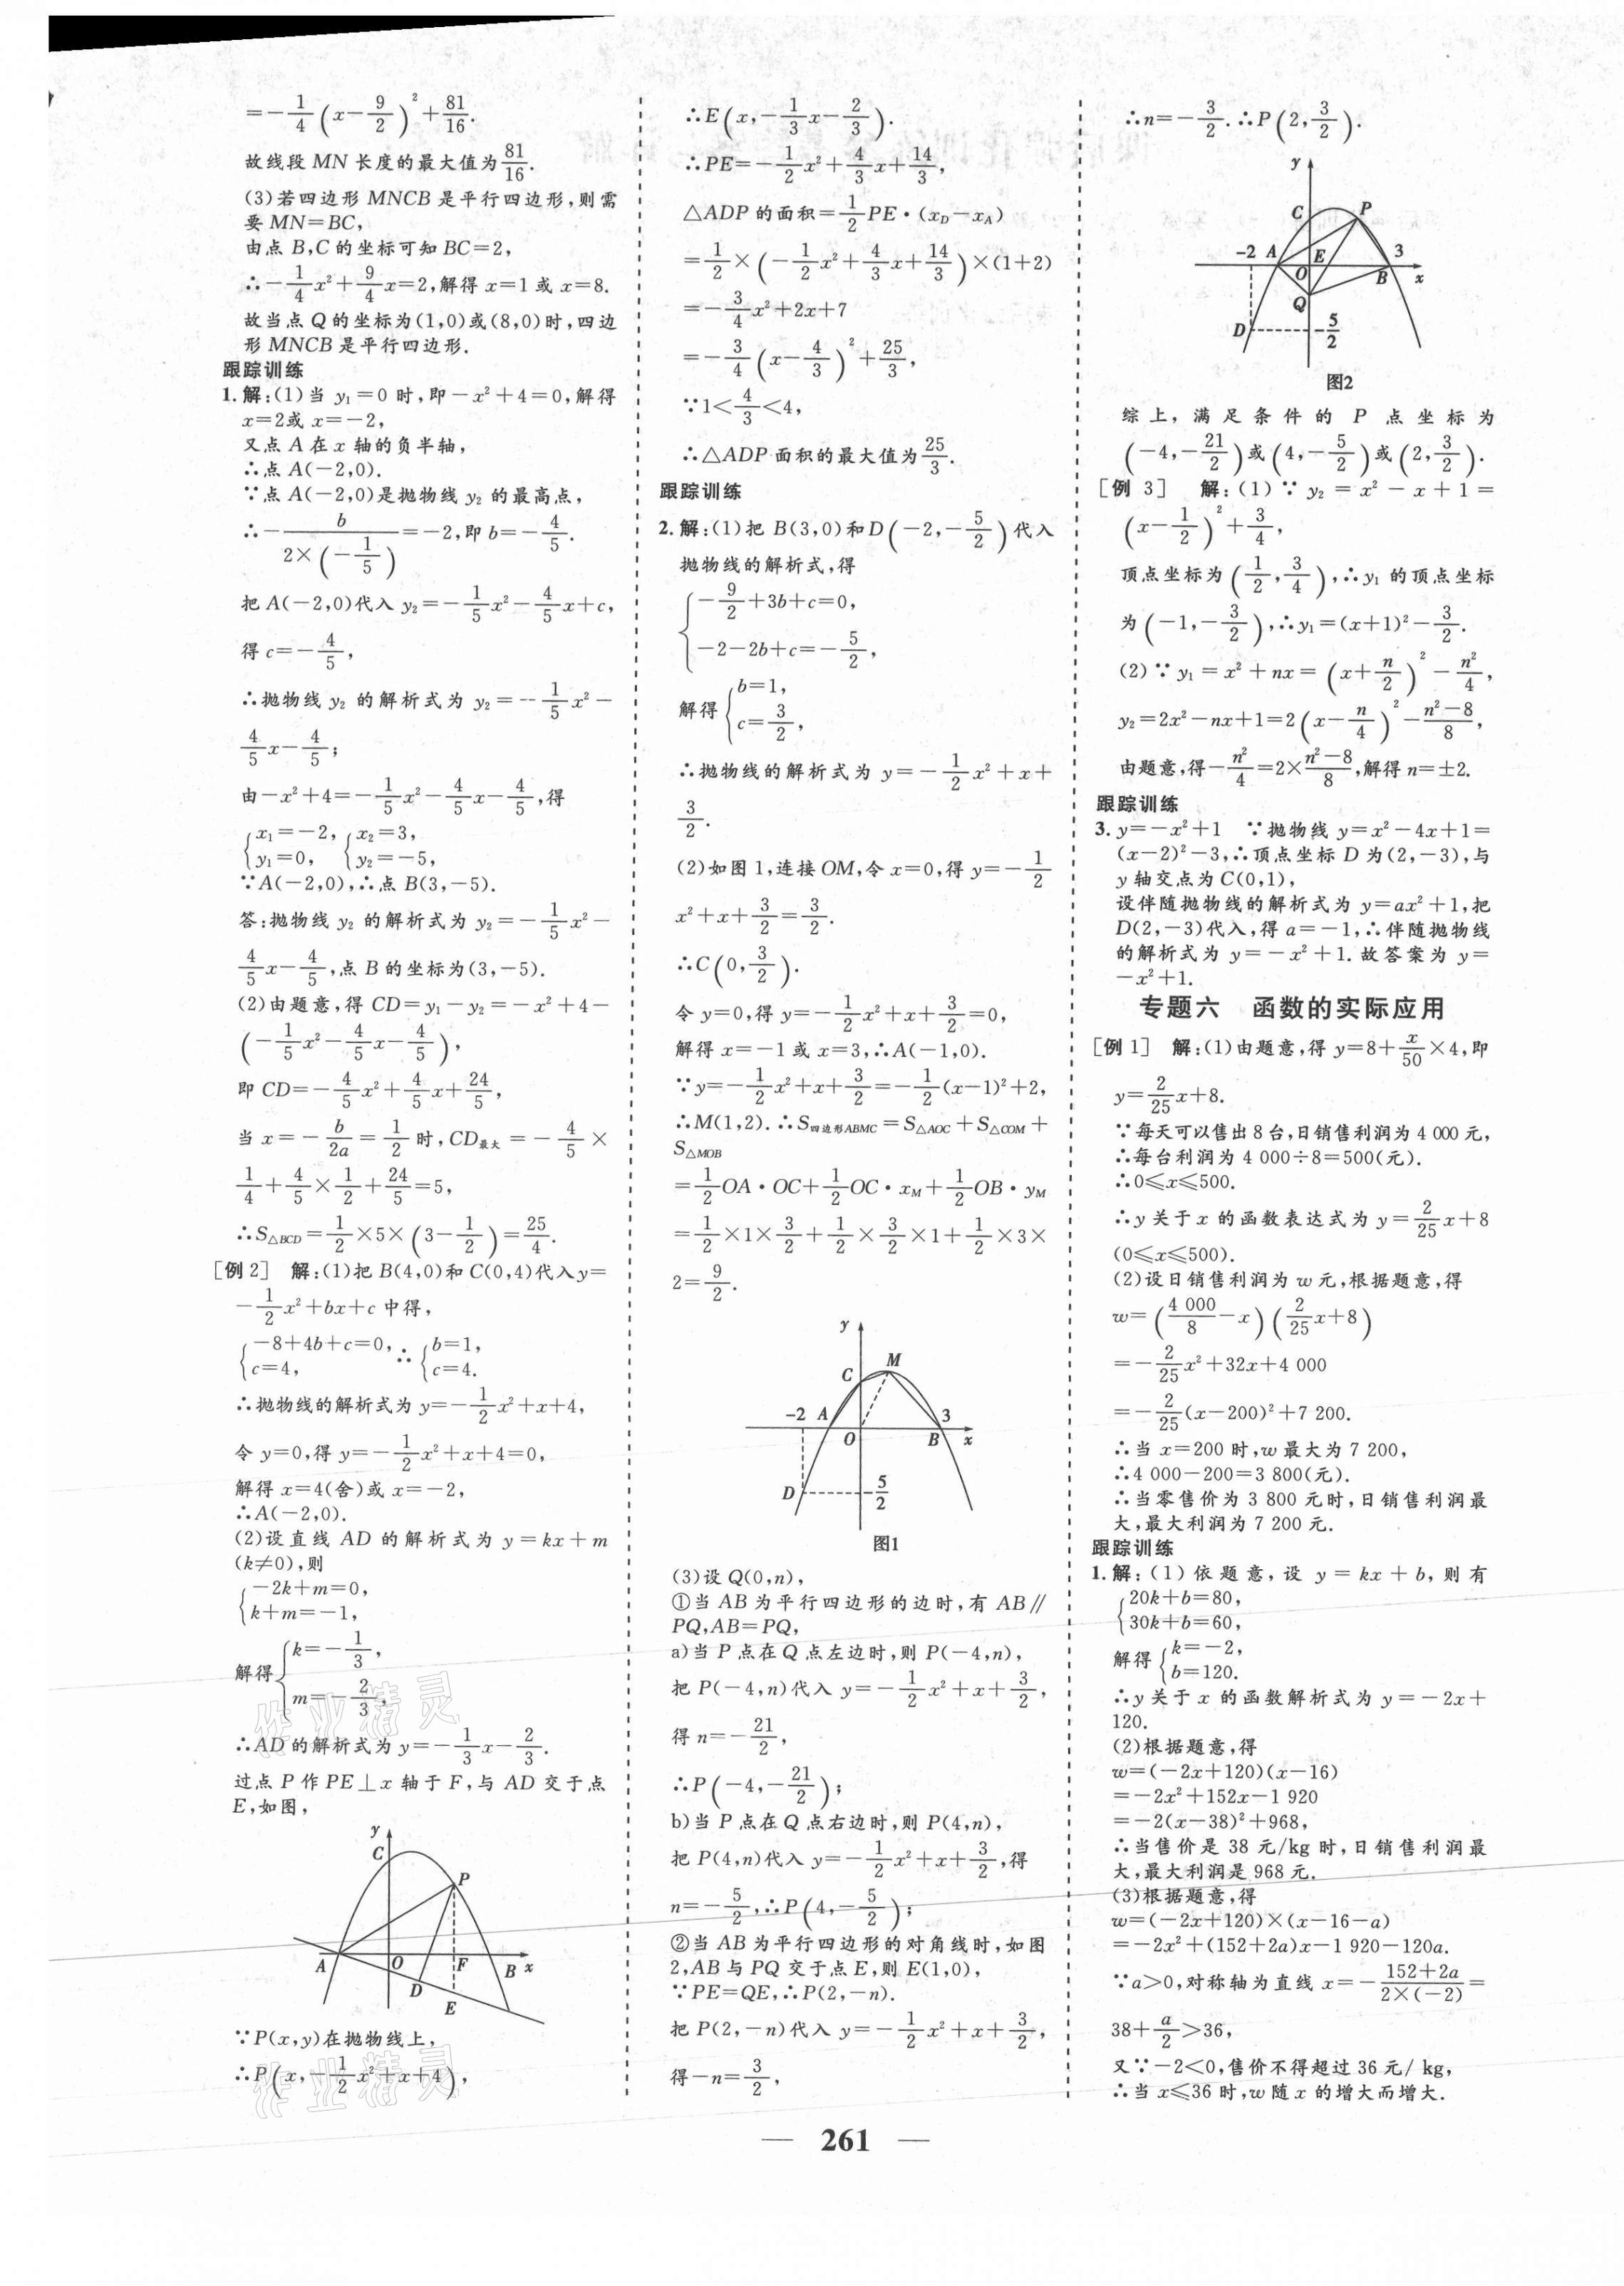 =-1/4(x-9/2)²+81/16.
故线段 MN 长度的最大值为81/16.
(3)若四边形 MNCB 是平行四边形,则需
要 MN=BC,
由点 B,C 的坐标可知 BC=2,
∴-1/4x²+9/4x=2,解得 x=1 或 x=8.
故当点 Q 的坐标为(1,0)或(8,0)时,四边
形 MNCB 是平行四边形.
跟踪训练
1.解:(1)当 y₁=0 时,即-x²+4=0,解得
x=2或 x=-2,
又点 A 在 x 轴的负半轴,
∴点 A(-2,0).
∵点 A(-2,0)是抛物线 y₂ 的最高点,
∴-b/(2×(-1/5))=-2,即 b=-4/5.
把 A(-2,0)代入 y₂=-1/5x²-4/5x+c,
得 c=-4/5,
∴抛物线 y₂ 的解析式为 y₂=-1/5x²-
4/5x-4/5;
由-x²+4=-1/5x²-4/5x-4/5,得
{x₁=-2, {x₂=3,
y₁=0, y₂=-5,
∵A(-2,0),∴点 B(3,-5).
答:抛物线 y₂ 的解析式为 y₂=-1/5x²-
4/5x-4/5,点 B 的坐标为(3,-5).
(2)由题意,得 CD=y₁-y₂=-x²+4-
(-1/5x²-4/5x-4/5),
即 CD=-4/5x²+4/5x+24/5,
当 x=-b/2a=1/2 时,CD最大=-4/5×
1/4+4/5×1/2+24/5=5,
∴S△BCD=1/2×5×(3-1/2)=25/4.
[例 2] 解:(1)把 B(4,0)和 C(0,4)代入y=
-1/2x²+bx+c 中得,
{-8+4b+c=0, ∴ {b=1,
c=4, c=4.
∴抛物线的解析式为 y=-1/2x²+x+4,
令 y=0,得 y=-1/2x²+x+4=0,
解得 x=4(舍)或 x=-2,
∴A(-2,0).
(2)设直线 AD 的解析式为 y=kx+m
(k≠0),则
{-2k+m=0,
k+m=-1,
解得{k=-1/3,
m=-2/3,
∴AD 的解析式为 y=-1/3x-2/3.
过点 P 作 PE⊥x 轴于 F,与 AD 交于点
E,如图,
y
C
P
A
O
F
B
x
D
E
∵P(x,y)在抛物线上,
∴P(x,-1/2x²+x+4),
∴E(x,-1/3x-2/3).
∴PE=-1/2x²+4/3x+14/3,
△ADP 的面积=1/2PE·(xD-xA)
=1/2×(-1/2x²+4/3x+14/3)×(1+2)
=-3/4x²+2x+7
=-3/4(x-4/3)²+25/3,
∵1<4/3<4,
∴△ADP 面积的最大值为25/3.
跟踪训练
2.解:(1)把 B(3,0)和 D(-2,-5/2)代入
抛物线的解析式,得
{-9/2+3b+c=0,
-2-2b+c=-5/2,
解得{b=1,
c=3/2,
∴抛物线的解析式为 y=-1/2x²+x+
3/2.
(2)如图 1,连接 OM,令 x=0,得 y=-1/2
x²+x+3/2=3/2.
∴C(0,3/2).
令 y=0,得 y=-1/2x²+x+3/2=0,
解得 x=-1 或 x=3,∴A(-1,0).
∵y=-1/2x²+x+3/2=-1/2(x-1)²+2,
∴M(1,2).∴S四边形ABMC=S△AOC+S△COM+
S△MOB
=1/2OA·OC+1/2OC·xM+1/2OB·yM
=1/2×1×3/2+1/2×3/2×1+1/2×3×
2=9/2.
y
M
C
-2 A
3
O
B
x
D
-5/2
图1
(3)设 Q(0,n),
①当 AB 为平行四边形的边时,有 AB∥
PQ,AB=PQ,
a)当 P 点在 Q 点左边时,则 P(-4,n),
把 P(-4,n)代入 y=-1/2x²+x+3/2,
得 n=-21/2,
∴P(-4,-21/2);
b)当 P 点在 Q 点右边时,则 P(4,n),
把 P(4,n)代入 y=-1/2x²+x+3/2,得
n=-5/2,∴P(4,-5/2);
②当 AB 为平行四边形的对角线时,如图
2,AB 与 PQ 交于点 E,则 E(1,0),
∵PE=QE,∴P(2,-n).
把 P(2,-n)代入 y=-1/2x²+x+3/2,
得-n=3/2,
∴n=-3/2.∴P(2,3/2).
y
C
P
-2 A
E
3
O
B
x
Q
D
-5/2
图2
综上,满足条件的 P 点坐标为
(-4,-21/2)或(4,-5/2)或(2,3/2).
[例 3] 解:(1)∵y₂=x²-x+1=
(x-1/2)²+3/4,
顶点坐标为(1/2,3/4),∴y₁ 的顶点坐标
为(-1,-3/2),∴y₁=(x+1)²-3/2.
(2)∵y₁=x²+nx=(x+n/2)²-n²/4,
y₂=2x²-nx+1=2(x-n/4)²-(n²-8)/8,
由题意,得-n²/4=2×(n²-8)/8,解得 n=±2.
跟踪训练
3.y=-x²+1 ∵抛物线 y=x²-4x+1=
(x-2)²-3,∴顶点坐标 D 为(2,-3),与
y 轴交点为 C(0,1),
设伴随抛物线的解析式为 y=ax²+1,把
D(2,-3)代入,得 a=-1,∴伴随抛物线
的解析式为 y=-x²+1.故答案为 y=
-x²+1.
专题六 函数的实际应用
[例 1] 解:(1)由题意,得 y=8+x/50×4,即
y=2/25x+8.
∵每天可以售出 8 台,日销售利润为 4 000 元,
∴每台利润为 4 000÷8=500(元).
∴0≤x≤500.
∴y 关于 x 的函数表达式为 y=2/25x+8
(0≤x≤500).
(2)设日销售利润为 w 元,根据题意,得
w=(4 000/8-x)(2/25x+8)
=-2/25x²+32x+4 000
=-2/25(x-200)²+7 200.
∴当 x=200 时,w 最大为 7 200,
∴4 000-200=3 800(元).
∴当零售价为 3 800 元时,日销售利润最
大,最大利润为 7 200 元.
跟踪训练
1.解:(1)依题意,设 y=kx+b,则有
{20k+b=80,
30k+b=60,
解得{k=-2,
b=120.
∴y 关于 x 的函数解析式为 y=-2x+
120.
(2)根据题意,得
w=(-2x+120)(x-16)
=-2x²+152x-1 920
=-2(x-38)²+968,
∴当售价是 38 元/kg 时,日销售利润最
大,最大利润是 968 元.
(3)根据题意,得
w=(-2x+120)×(x-16-a)
=-2x²+(152+2a)x-1 920-120a.
∵a>0,对称轴为直线 x=-(152+2a)/(2×(-2))=
38+a/2>36,
又∵-2<0,售价不得超过 36 元/kg,
∴当 x≤36 时,w 随 x 的增大而增大.
作业精灵
作业精灵
— 261 —